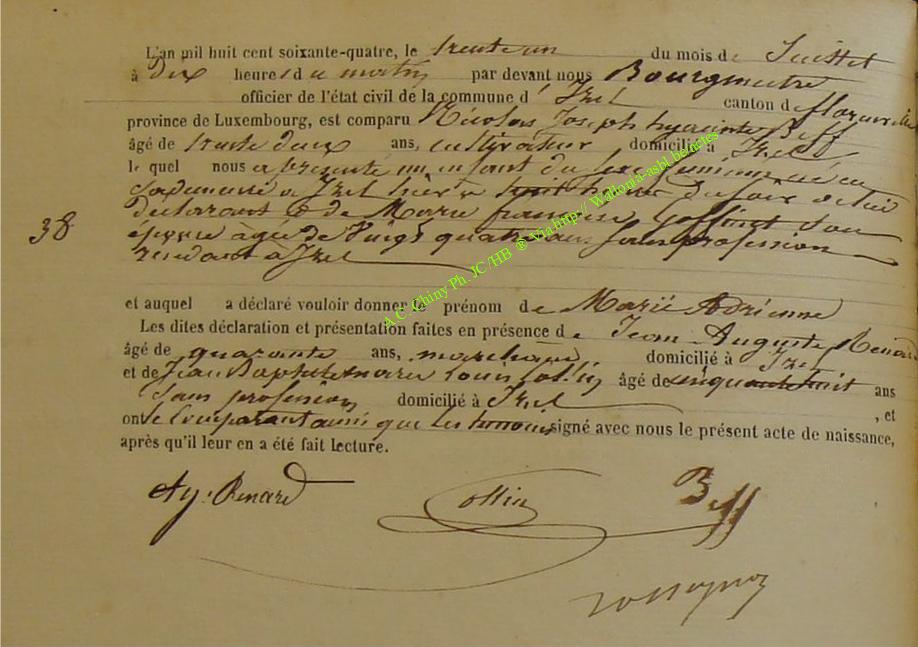 L'an mil huit cent soixante-quatre, le trente un du mois de Juillet
à dix heures du matin par devant nous Bourgmestre
officier de l'état civil de la commune d' Izel canton de florenville
province de Luxembourg, est comparu Nicolas Joseph hyacinthe Beff
âgé de trente deux ans, cultivateur domicilié à Izel
le quel nous a présenté un enfant du sexe féminin
à Izel hier à heures du soir de lui
déclarant & de Marie françoise Goffinet son
épouse âgée de Vingt quatre ans sans profession
résidant à Izel
38
et auquel a déclaré vouloir donner le prénom de Marie Adrienne
Les dites déclaration et présentation faites en présence de Jean Auguste Renard
âgé de quarante ans, marchand, domicilié à Izel
et de Jean Baptiste marie Louis Collin âgé de cinquante huit ans
sans profession domicilié à Izel , et
ont le comparant ainsi que les temoins signé avec nous le présent acte de naissance,
après qu'il leur en a été fait lecture.
Ag: Renard Collin Beff
A.C. Chiny Ph. JC/HB ® Via http:// Wallonia-asbl.be/actes